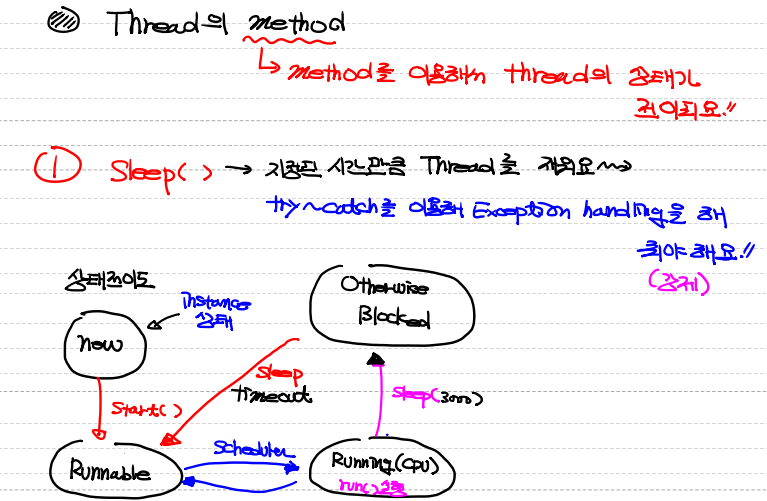 Thread의 method
method를 이용해서 thread의 상태가
전이되요.!!
① Sleep( ) → 지정된 시간만큼 Thread를 재워요
try ~ catch를 이용해 Exception handling을 해
줘야 해요.!!
(강제)
상태전이도
instance
상태
new
Otherwise
Blocked
sleep
timeout
sleep(3000)
start( )
Scheduler
Runnable
Running(CPU)
run() 호출